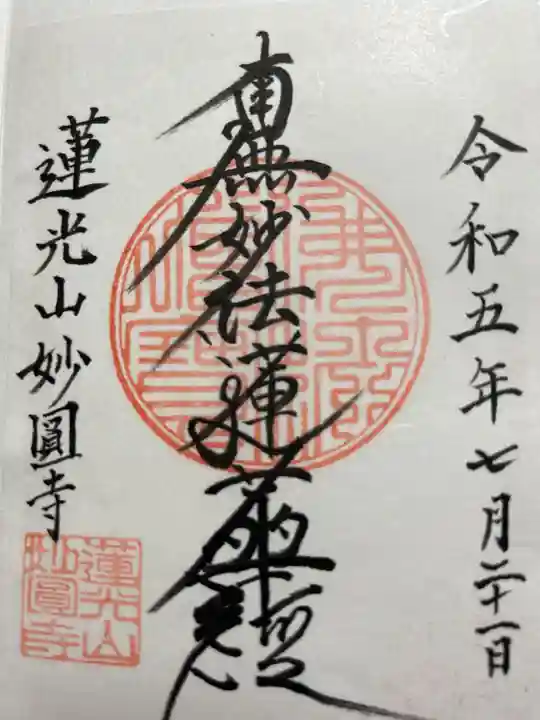 令和五年七月二十一日
南無妙法蓮華經
蓮光山妙圓寺
蓮光山
妙圓寺